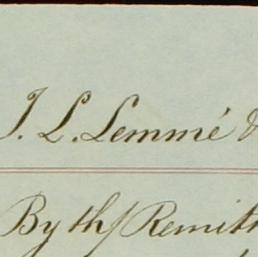 J. L. Lemmé &
By th/ Remitt